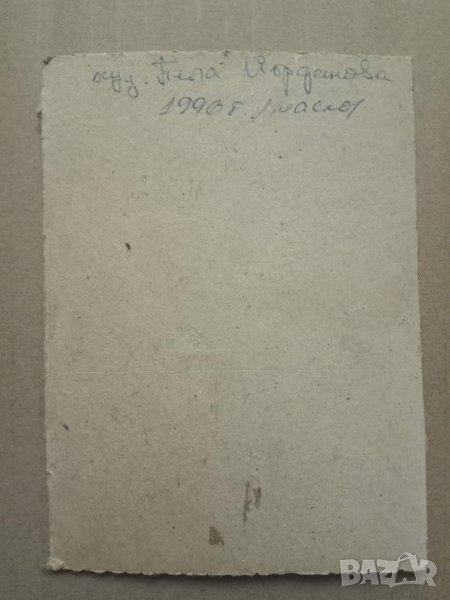 худ. Пепа Йорданова
1990 г. /масло/
BAZAR